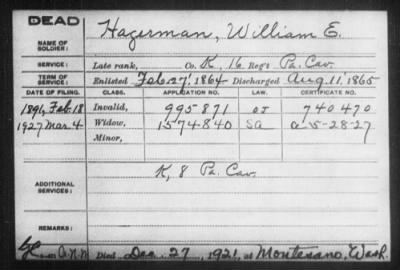 DEAD
NAME OF SOLDIER: Hagerman, William E.
SERVICE: Late rank, Co. K, 16 Reg't Pa. Cav.
TERM OF SERVICE: Enlisted Feb. 27, 1864 Discharged Aug. 11, 1865
DATE OF FILING. CLASS. APPLICATION NO. LAW. CERTIFICATE NO.
1891, Feb. 18 Invalid, 995871 740470
1927 Mar. 4 Widow, 1574840 a-5-28-27
Minor,
ADDITIONAL SERVICES: K, 8 Pa. Cav.
REMARKS:
Died Dec. 27, 1921, at Montesano, Wash.